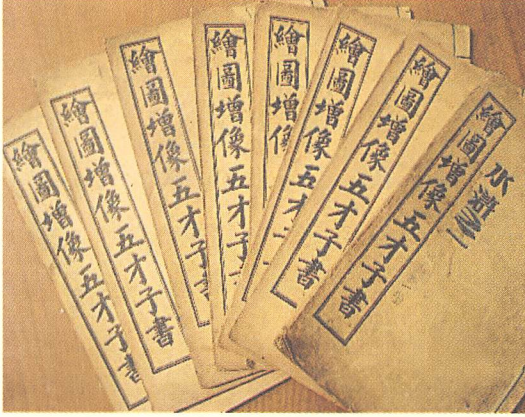 繪圖增像五才子書
繪圖增像五才子書
繪圖增像五才子
繪圖增像五才子
繪圖增像
繪圖增像五才
繪圖增像五才子書
繪圖增像五才子書
水滸